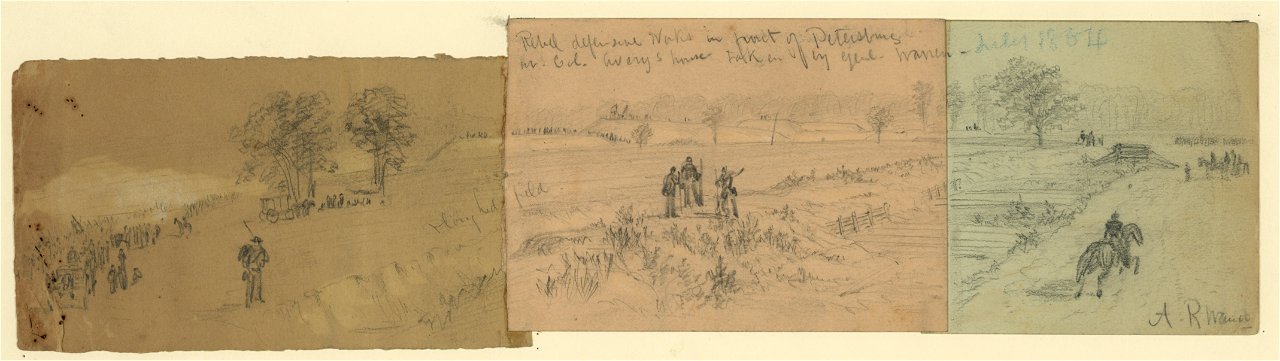 Rebel defensive Works in front of Petersburg
nr. Col. Avery's house taken by Genl. Warren
July 1864
Ploughed
field
A. R Waud